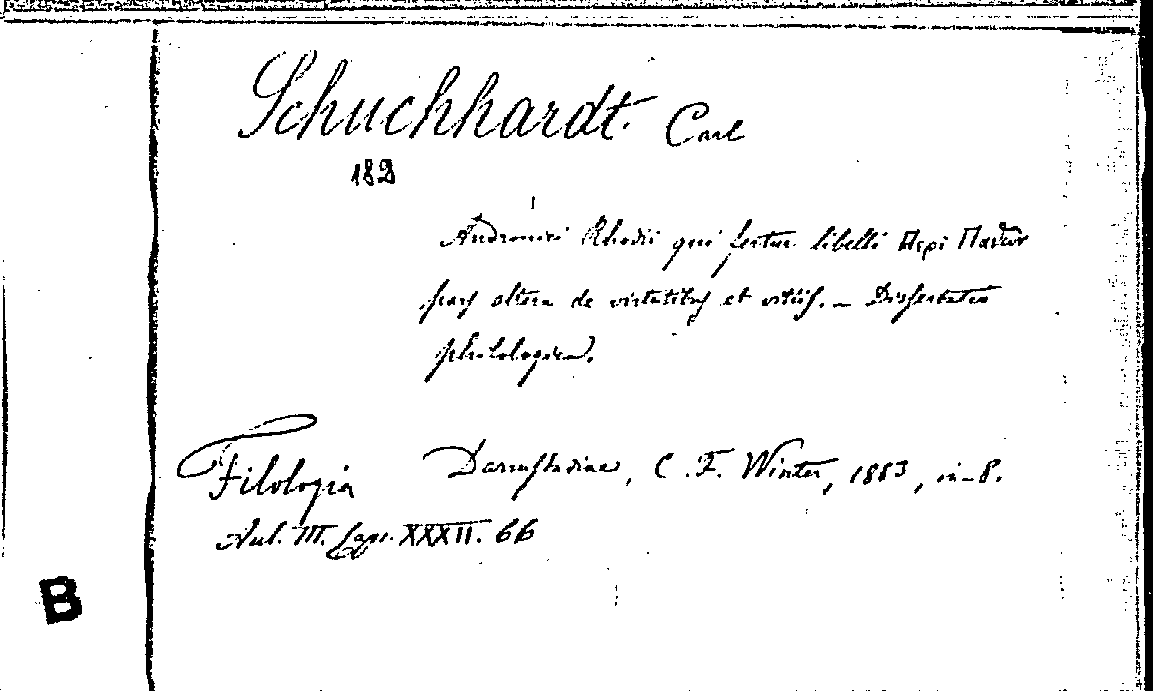 Schuchhardt. Carl
182
Andronici Rhodii qui fertur libelli Περι Παθων
pars altera de virtutibus et vitiis. - Dissertatio
philologica.
Filologia
Darmstadiae, C. F. Winter, 1883, in-8.
Aul. III. Caps. XXXII. 66
B